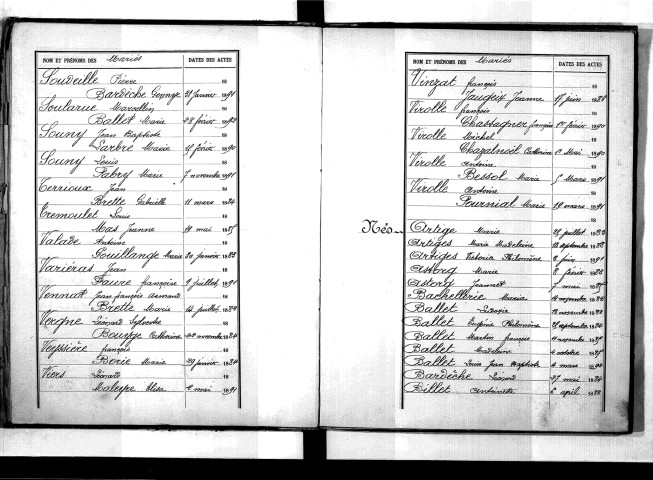 NOM ET PRÉNOMS DES Mariés DATES DES ACTES
Soudeille Pierre 18
Bardèche 21 Janvier 1891
Soularue Marcellin 18
Ballet Marie 28 février 1892
Souny Jean Baptiste 18
Larbre Marie 15 février 1890
Souny Louis 18
Fabry Marie 7 novembre 1891
Terrioux Jean 18
Brette Gabrielle 11 mars 1884
Tremoulet Louis 18
Mas Jeanne 14 mai 1885
Valade Antoine 18
Gouillange Marie 20 janvier 1883
Variéras Jean 18
Faure françoise 9 juillet 1891
Vennat Jean françois armand 18
Brette Marie 14 juillet 1884
Vergne Léonard Sylvestre 18
Catherine 22 novembre 1884
Veyssière françois 18
Borie Marie 29 janvier 1884
Viers Léonard 18
Maleyre Elisa 2 mai 1891
NOM ET PRÉNOMS DES Mariés DATES DES ACTES
Vinzat françois 18
Jaugeix Jeanne 17 juin 1888
Virolle françois 18
Chastagner françoise 1er février 1890
Virolle Michel 18
Chazalnoël Catherine Mai 1890
Virolle Antoine 18
Bessol Marie 5 Mars 1891
Virolle Antoine 18
Peurnial Marie 19 mars 1891
Nés
Artige Marie 25 juillet 1883
Artiges Marie Madeleine 13 septembre 1888
Artiges Victoria Philomène 2 juin 1891
Astorg Marie 8 février 1884
Astorg Jeannet 7 mai 1885
Bachellerie Maria 4 novembre 1886
Ballet 18 novembre 1882
Ballet Eugénie Philomène 25 septembre 1884
Ballet Martin françois 11 novembre 1885
Ballet Madeleine 4 octobre 1885
Ballet Louis Jean Baptiste 4 mars 1890
Bardèche Léonard 27 mai 1884
Billet Antoinette 6 april 1888